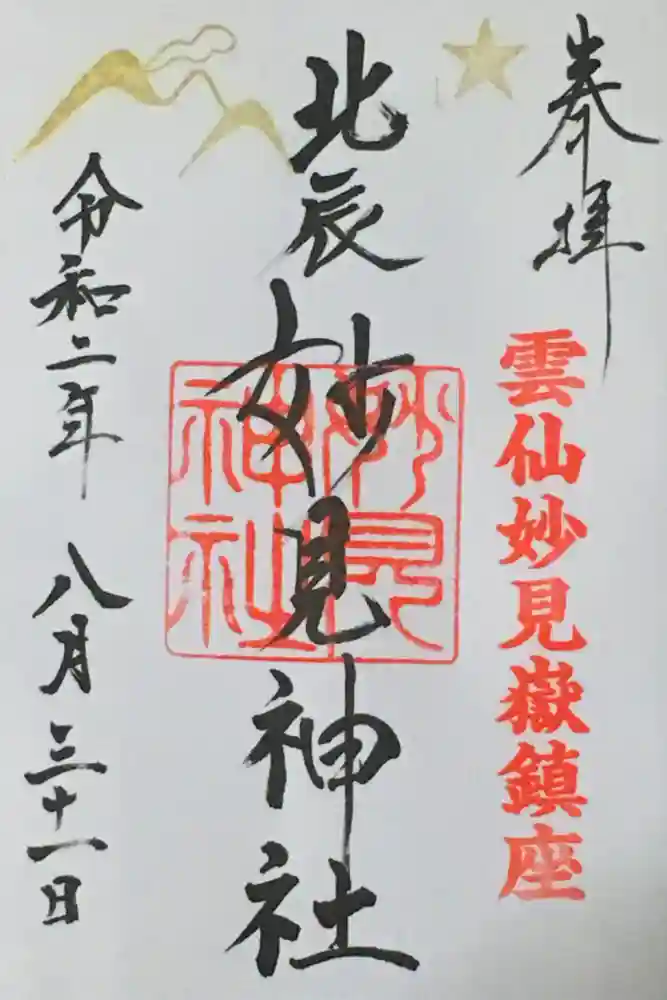 奉拝
雲仙妙見嶽鎮座
北辰妙見神社
妙見
神社
令和二年 八月三十一日